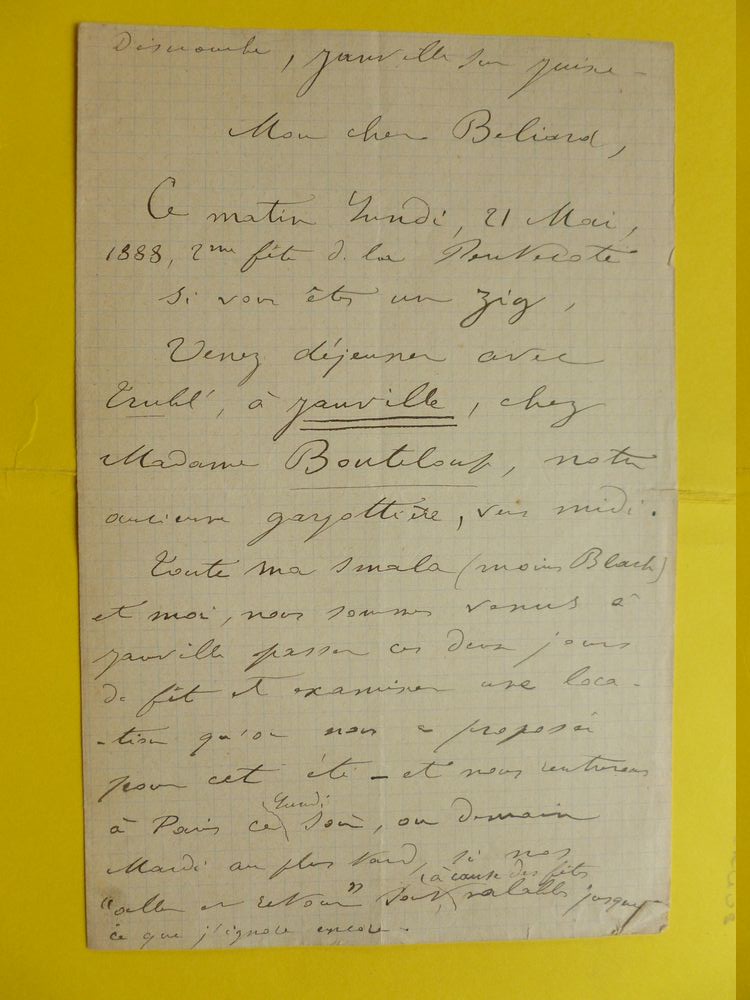 Dimanche, Janville sur Juine -
Mon cher Beliard,
Ce matin Lundi, 21 Mai,
1888, 2me fête de la Pentecote
si vous êtes un zig,
Venez déjeuner avec
Trubl', à Janville, chez
Madame Bouteloup, notre
ancienne gargottière, vers midi.
Toute ma smala (moins Black)
et moi, nous sommes venus à
Janville passer ces deux jours
de fête et examiner une loca-
-tion qu'on nous a proposée
pour cet été - et nous rentrerons
à Paris ce Lundi soir, ou demain
Mardi au plus tard, si nos
"aller et retour" sont (à cause des fêtes) valables jusque-
ce que j'ignore encore.